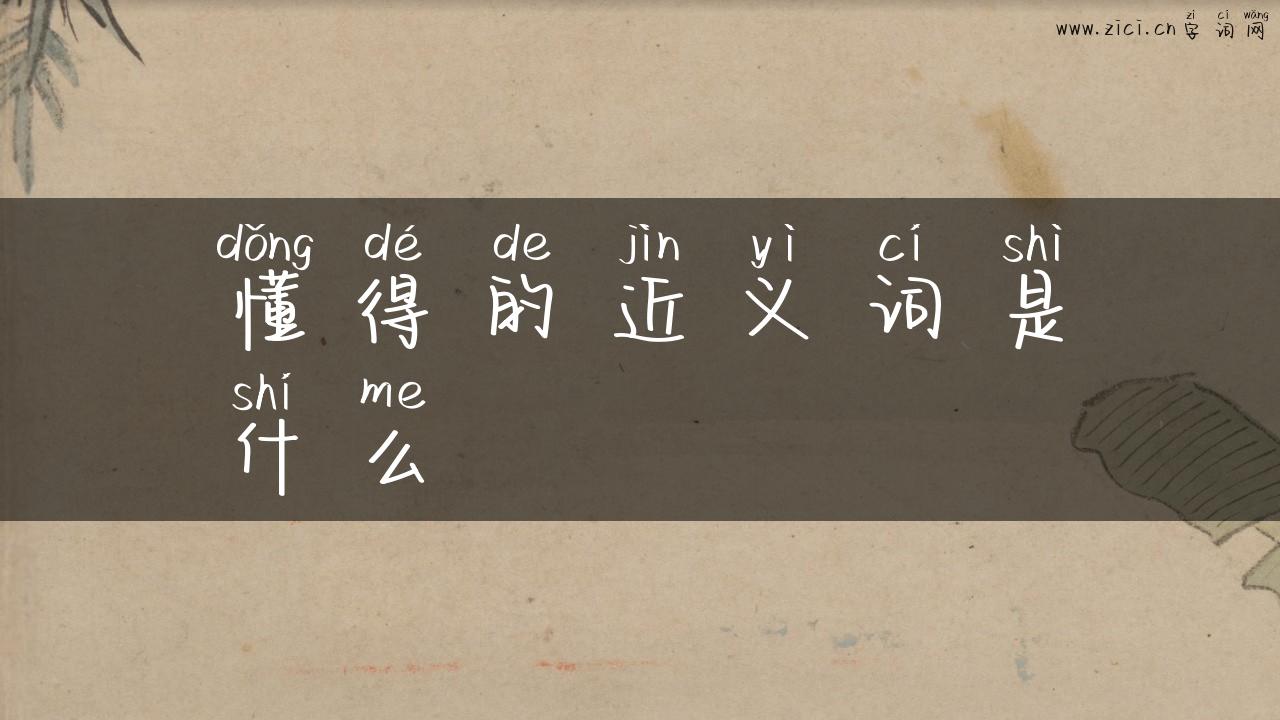 zì cí wǎng
www.zici.cn 字词网
dǒng dé de jìn yì cí shì
懂得的近义词是
shí me
什么